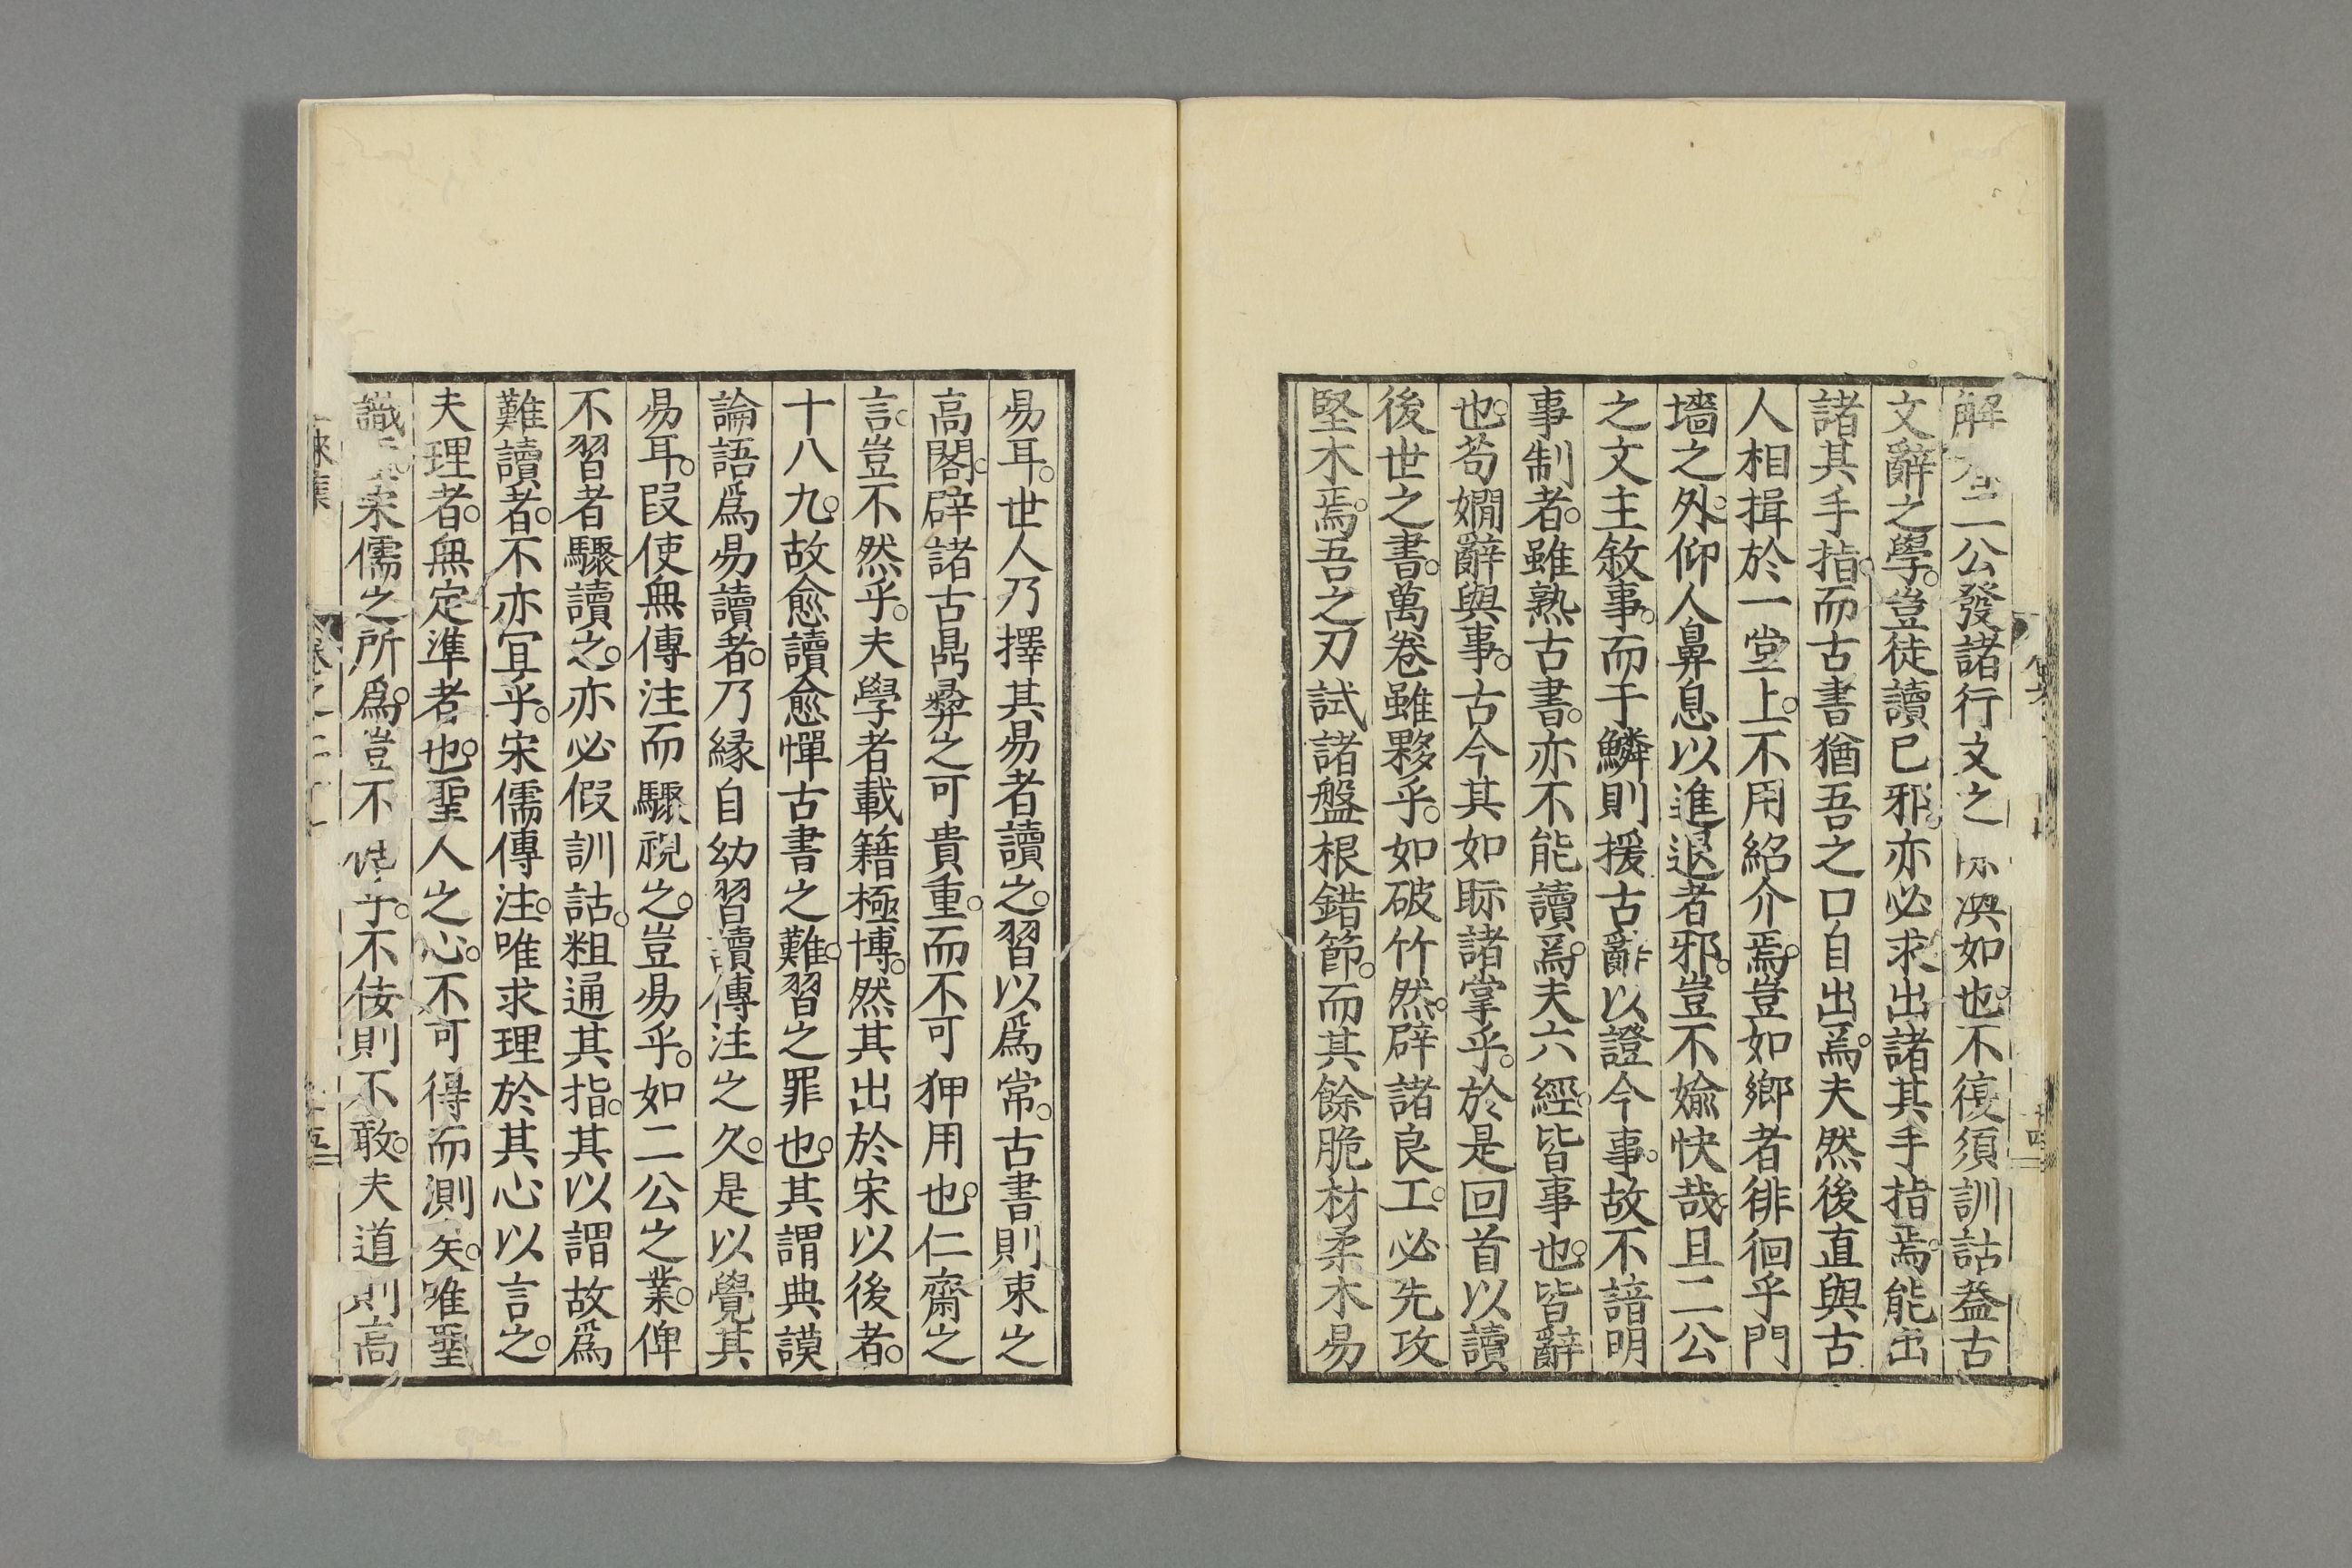 解 二公發諸行文之 渙如也不復須訓詁葢古
文辭之學。豈徒讀已邪。亦必求出諸其手指焉。能出
諸其手指。而古書猶吾之口自出焉。夫然後直與古
人相揖於一堂上。不用紹介焉。豈如鄉者徘徊乎門
墻之外。仰人鼻息以進退者邪。豈不婾快哉。且二公
之文主敘事。而于鱗則援古辭以證今事。故不諳明
事制者。雖熟古書。亦不能讀焉。夫六經。皆事也。皆辭
也。苟嫺辭與事。古今其如眎諸掌乎。於是回首以讀
後世之書。萬卷雖夥乎。如破竹然。辟諸良工。必先攻
堅木焉。吾之刃試諸盤根錯節。而其餘脆材柔木易
易耳。世人乃擇其易者讀之。習以爲常。古書則束之
高閣。辟諸古鼎彝之可貴重。而不可狎用也。仁齋之
言。豈不然乎。夫學者載籍極博。然其出於宋以後者。
十八九。故愈讀愈憚古書之難。習之罪也。其謂典謨
論語爲易讀者。乃緣自幼習讀傳注之久。是以覺其
易耳。叚使無傳注而驟視之。豈易乎。如二公之業。俾
不習者驟讀之。亦必假訓詁。粗通其指。其以謂故爲
難讀者。不亦冝乎。宋儒傳注。唯求理於其心以言之。
夫理者。無定準者也。聖人之心。不可得而測矣。唯聖
識 宋儒之所爲。豈不 乎。不佞則不敢。夫道則高